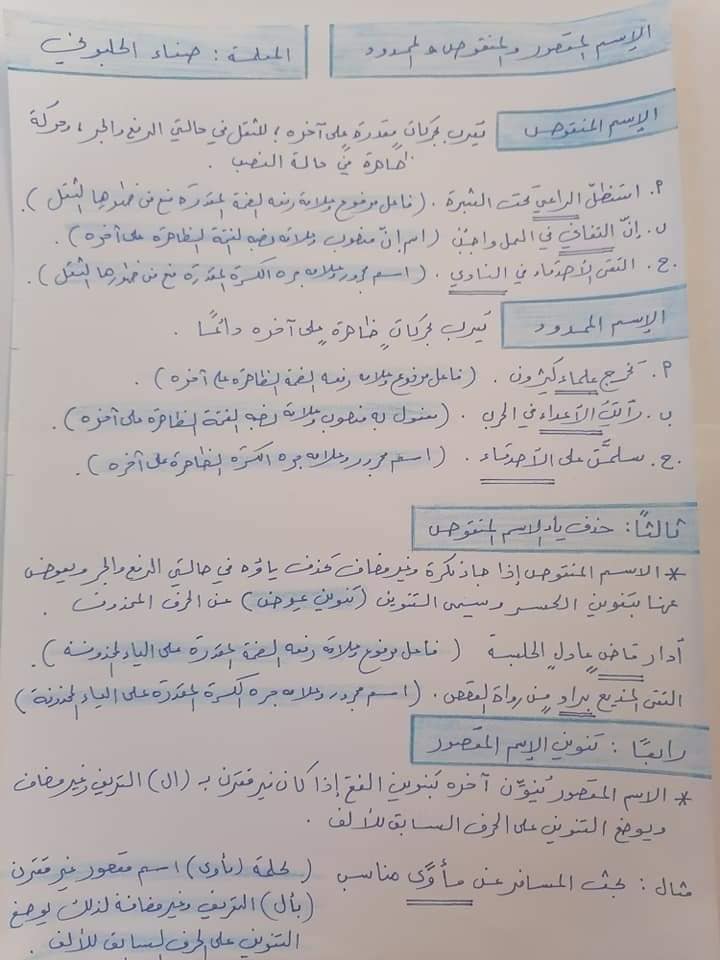 الإسم المقصور والمنقوص والممدود
المعلمة : صفاء الحلبوني
الإسم المنقوص
يُعرب بحركات مقدرة على آخره ؛ للثقل في حالتي الرفع والجر ، وحركة
ظاهرة في حالة النصب .
أ. استظلّ الراعي تحت الشجرة . ( فاعل مرفوع وعلامة رفعه الضمة المقدرة منع من ظهورها الثقل ) .
ب. إنّ التفاني في العمل واجبٌ ( اسم إنّ منصوب وعلامة نصبه الفتحة الظاهرة على آخره ) .
ج. التقى الأصدقاء في النادي . ( اسم مجرور وعلامة جره الكسرة المقدرة منع من ظهورها الثقل ) .
الإسم الممدود
يُعرب بحركاتٍ ظاهرةٍ على آخره دائمًا .
أ. تخرج علماء كثيرون . ( فاعل مرفوع وعلامة رفعه الضمة الظاهرة على آخره ) .
ب. الأعداء في الحرب . ( مفعول به منصوب وعلامة نصبه الفتحة الظاهرة على آخره ) .
ج. سلمتُ على الأصدقاء . ( اسم مجرور وعلامة جره الكسرة الظاهرة على آخره ) .
ثالثًا : حذف ياء الاسم المنقوص
* الاسم المنقوص إذا جاء نكرة وغير مضاف تحذف ياؤه في حالتي الرفع والجر ويعوض
عنها بتنوين الكسر ويسمى التنوين ( تنوين عوض ) عن الحرف المحذوف .
أدار قاضٍ عادل الجلسة ( فاعل مرفوع وعلامة رفعه الضمة المقدرة على الياء المحذوفة ) .
التقى المذيع براوٍ من رواة القصص . ( اسم مجرور وعلامة جره الكسرة المقدرة على الياء المحذوفة )
رابعًا : تنوين الإسم المقصور
* الاسم المقصور يُنوّن آخره بتنوين الفتح إذا كان غير مقترن بـ (ال) التعريف وغير مضاف
ويوضع التنوين على الحرف السابق للألف .
مثال : بحث المسافر عن مأوًى مناسب ( كلمة (مأوى) اسم مقصور غير مقترن
(بأل) التعريف وغير مضافة لذلك يوضع
التنوين على الحرف السابق للألف .